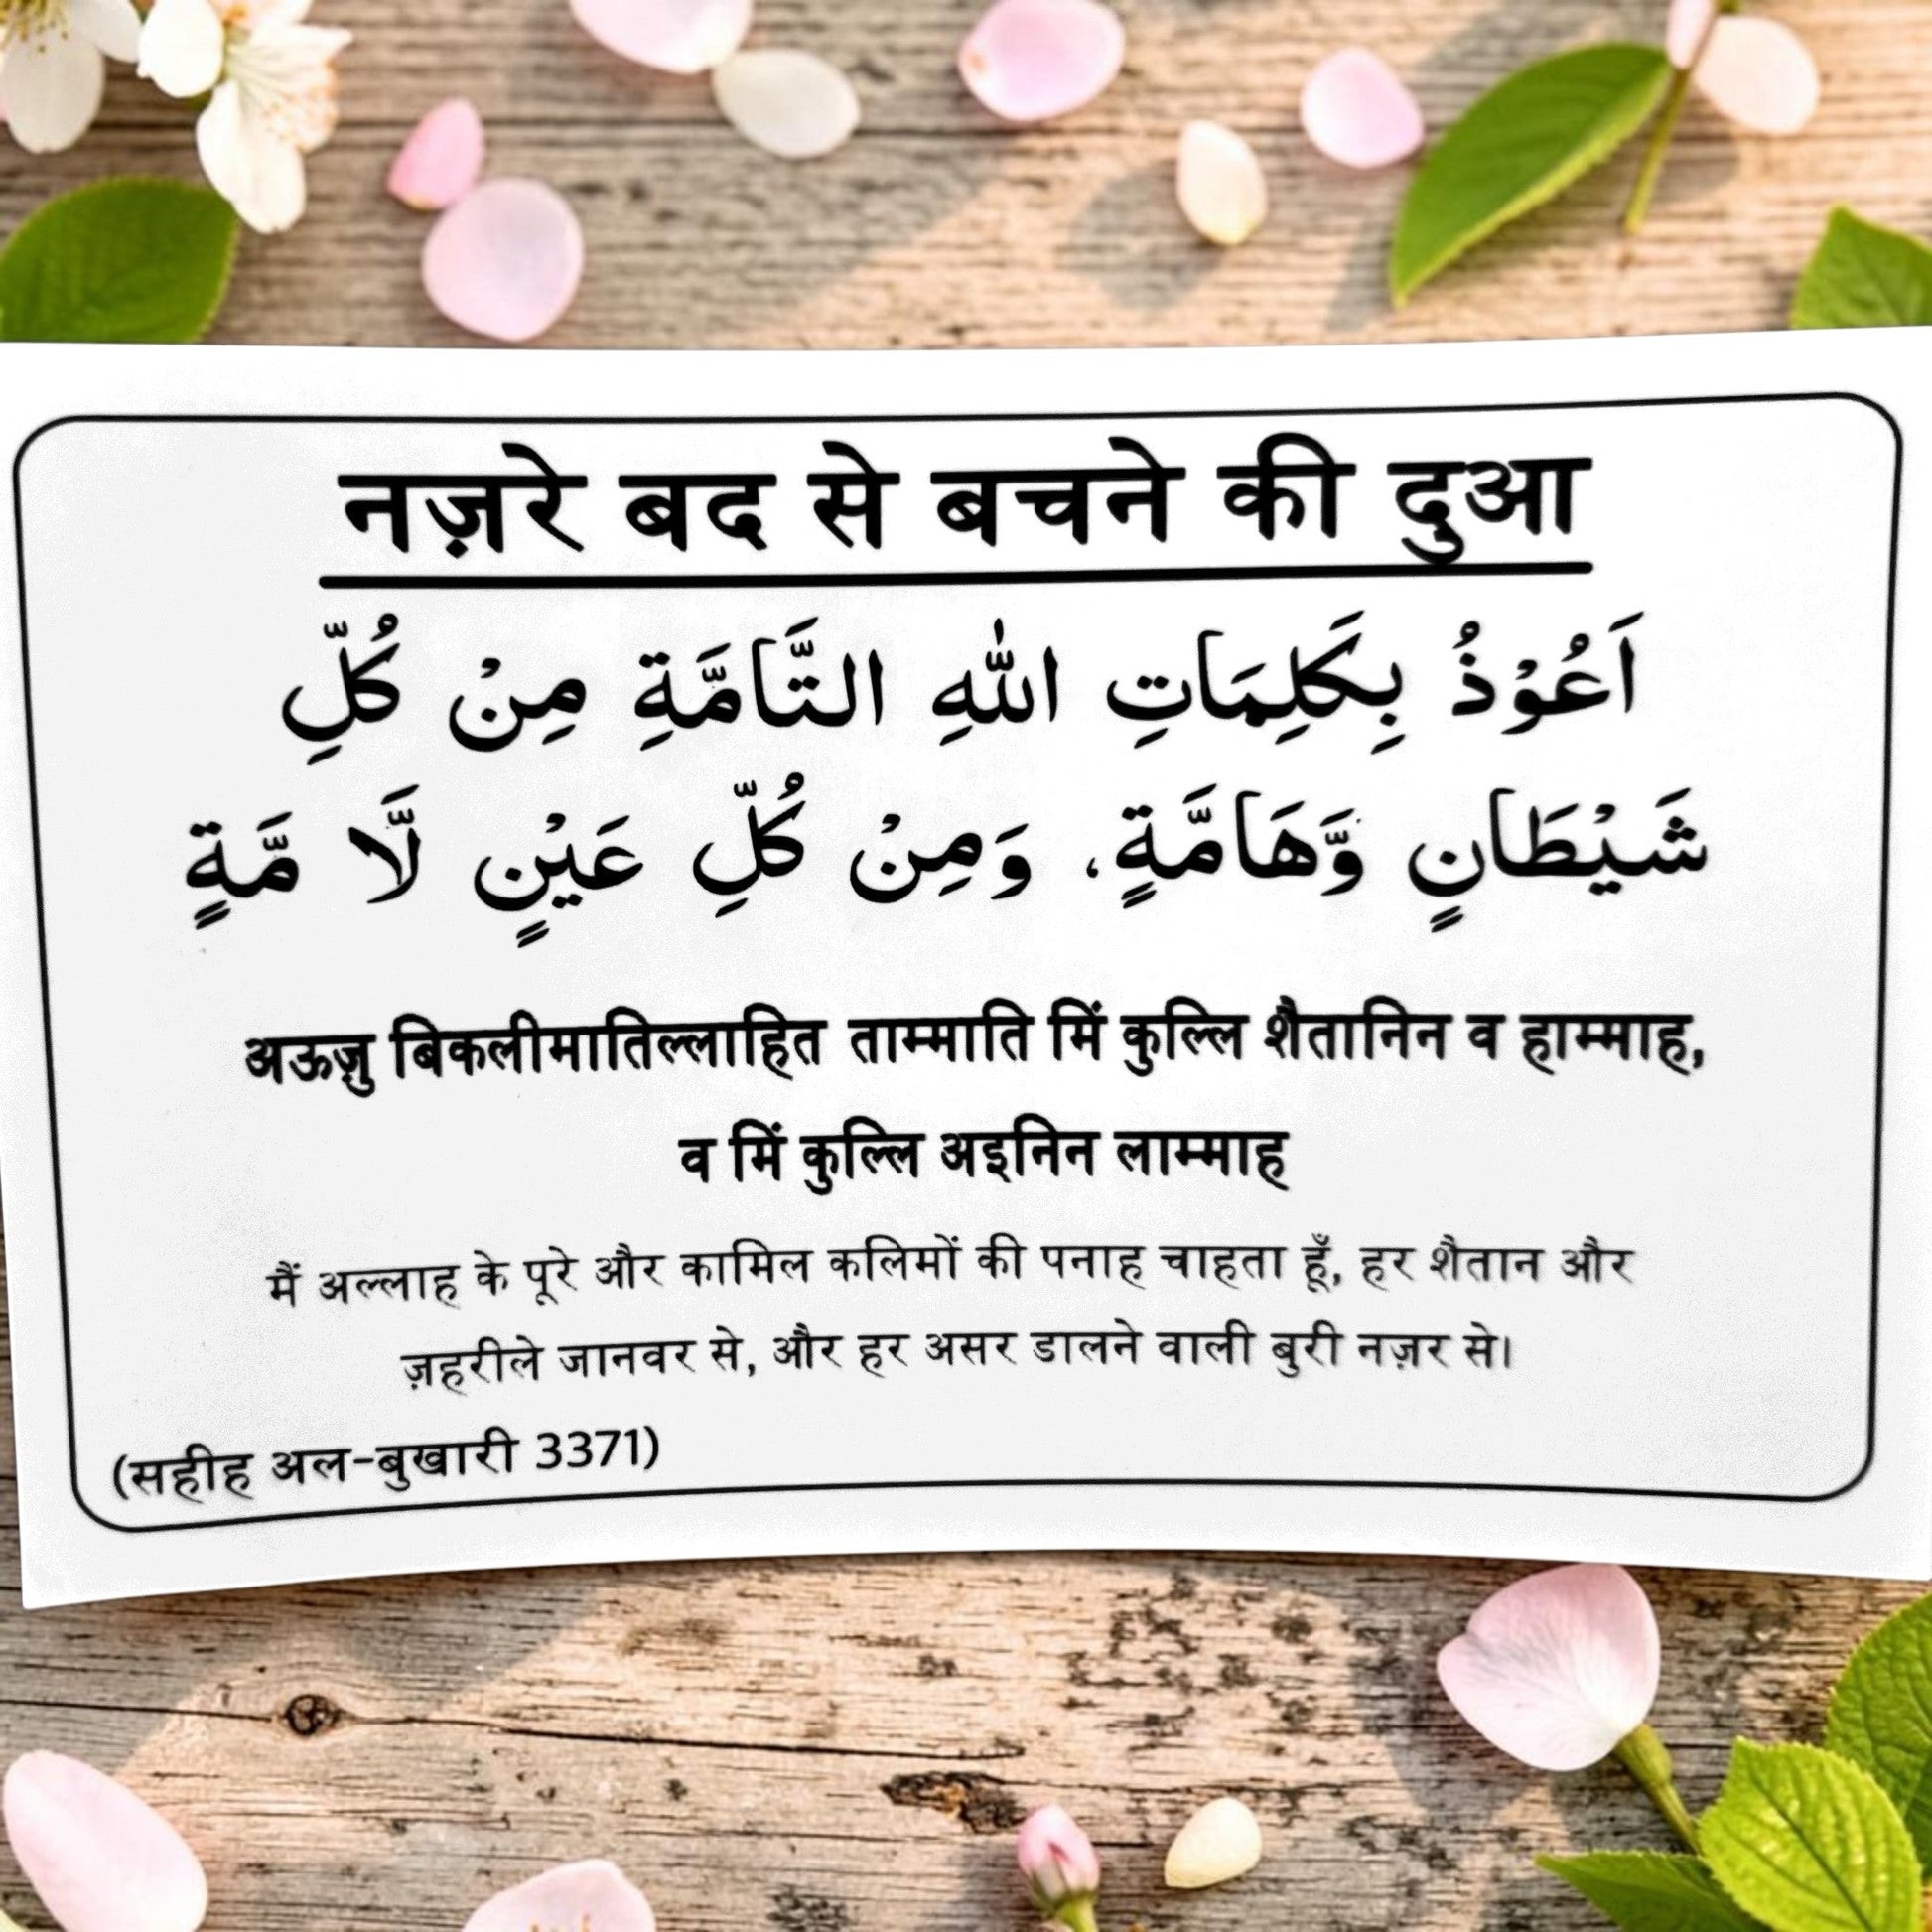 नज़रे बद से बचने की दुआ
اَعُوْذُ بِكَلِمَاتِ اللّٰهِ التَّامَّةِ مِنْ كُلِّ
شَيْطَانٍ وَّهَامَّةٍ، وَمِنْ كُلِّ عَيْنٍ لَّا مَّةٍ
अऊज़ु बिकलीमातिल्लाहित ताम्माति मिं कुल्लि शैतानिन व हाम्माह,
व मिं कुल्लि अइनिन लाम्माह
मैं अल्लाह के पूरे और कामिल कलिमों की पनाह चाहता हूँ, हर शैतान और
ज़हरीले जानवर से, और हर असर डालने वाली बुरी नज़र से।
(सहीह अल-बुखारी 3371)